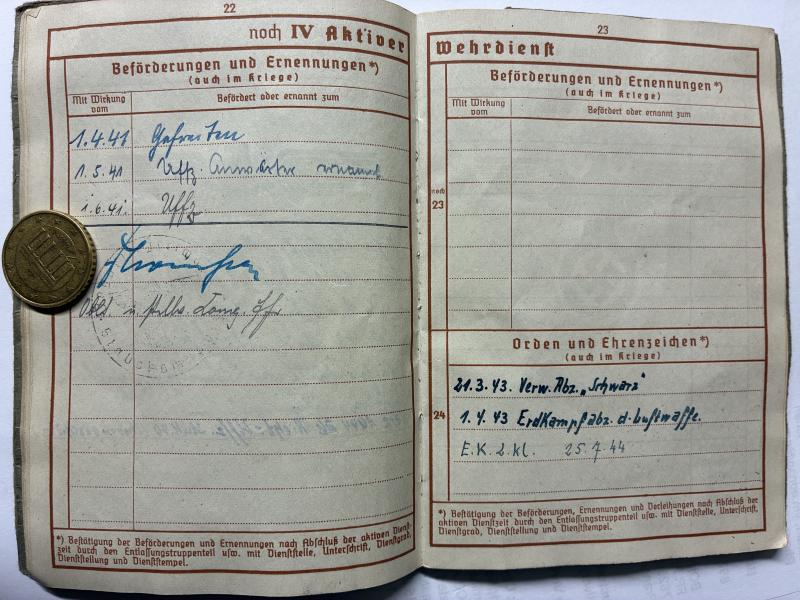 22
noch IV Aktiver
Beförderungen und Ernennungen*)
(auch im Kriege)
Mit Wirkung vom
Befördert oder ernannt zum
1.4.41 Gefreiten
1.5.41 Uffz. Anwärter ernannt
1.6.41. Uffz
Oblt. u.
*) Bestätigung der Beförderung und Ernennungen nach Abschluß der aktiven Dienst-
zeit durch den Entlassungstruppenteil usw. mit Dienststelle, Unterschrift, Dienstgrad,
Dienststellung und Dienststempel.
23
Wehrdienst
Beförderungen und Ernennungen*)
(auch im Kriege)
Mit Wirkung vom
Befördert oder ernannt zum
noch
23
Orden und Ehrenzeichen*)
(auch im Kriege)
21.3.43. Verw. Abz. „Schwarz"
24
1.4.43 Erdkampfabz. d. Luftwaffe.
E.K.2.kl. 25.7.44
*) Bestätigung der Beförderungen, Ernennungen und Verleihungen nach Abschluß der
aktiven Dienstzeit durch den Entlassungstruppenteil usw. mit Dienststelle, Unterschrift,
Dienstgrad, Dienststellung und Dienststempel.